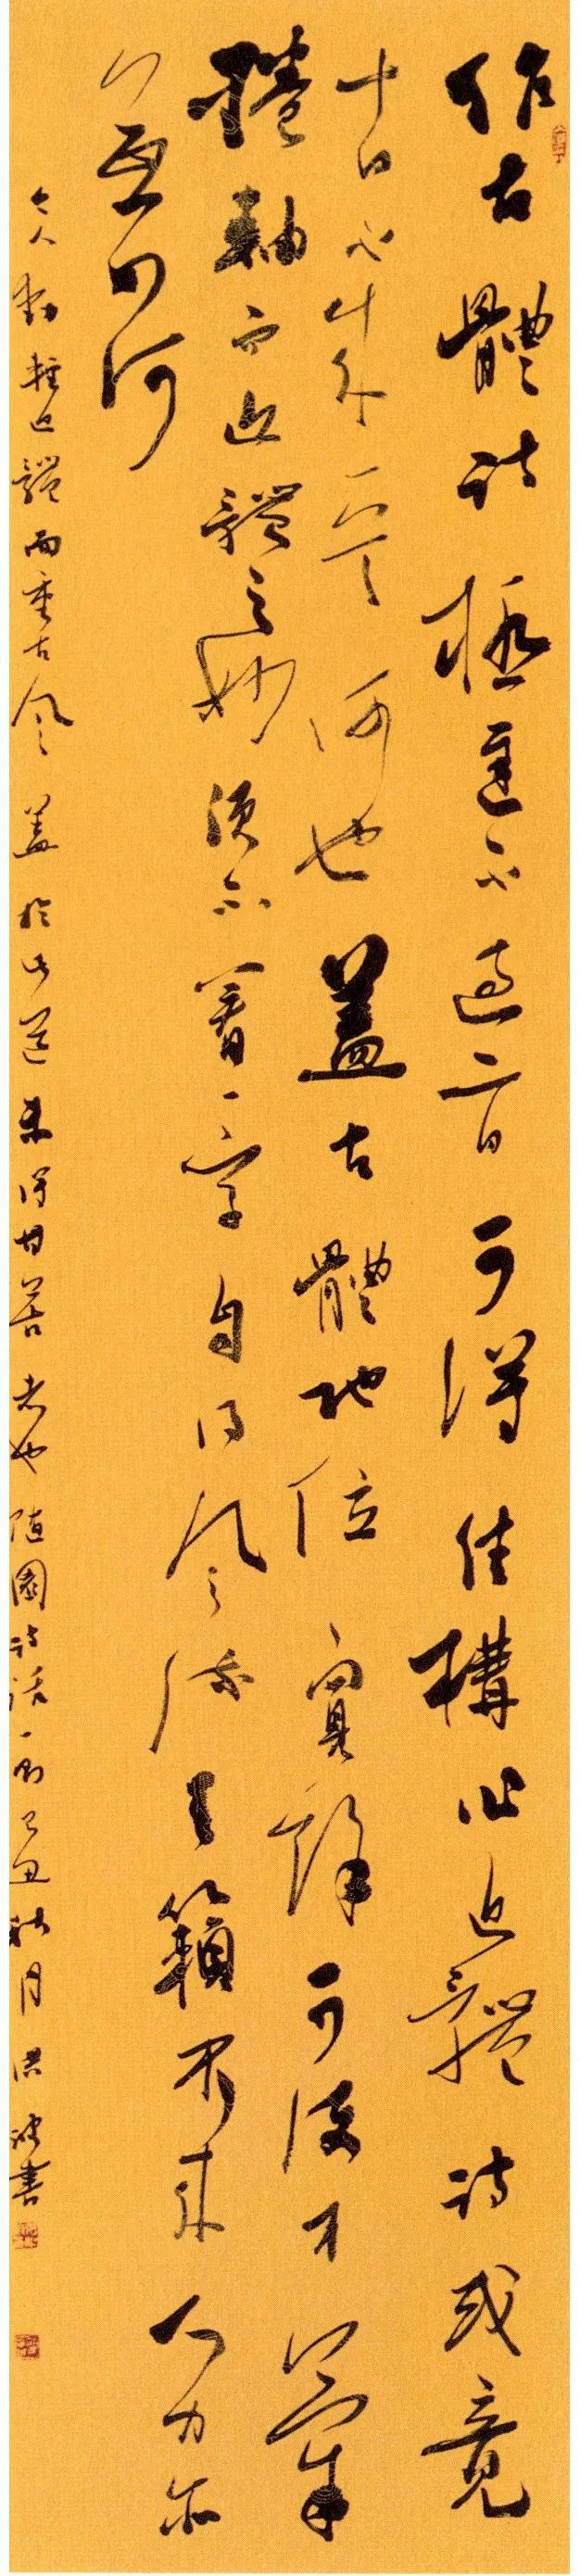 作古體詩極遲不過二日可得佳構作近體詩或竟
十日不成一首何也蓋古體地位寬餘可使才氣
捲軸而近體之妙須不著一字自得風流天籟不來人力亦
無如何
今人動輕近體而重古風蓋於此道未得甘苦者也隨園詩話一則己丑秋月洪波書